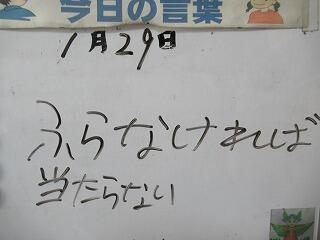 今日の言葉
1月29日
ふらなければ
当たらない